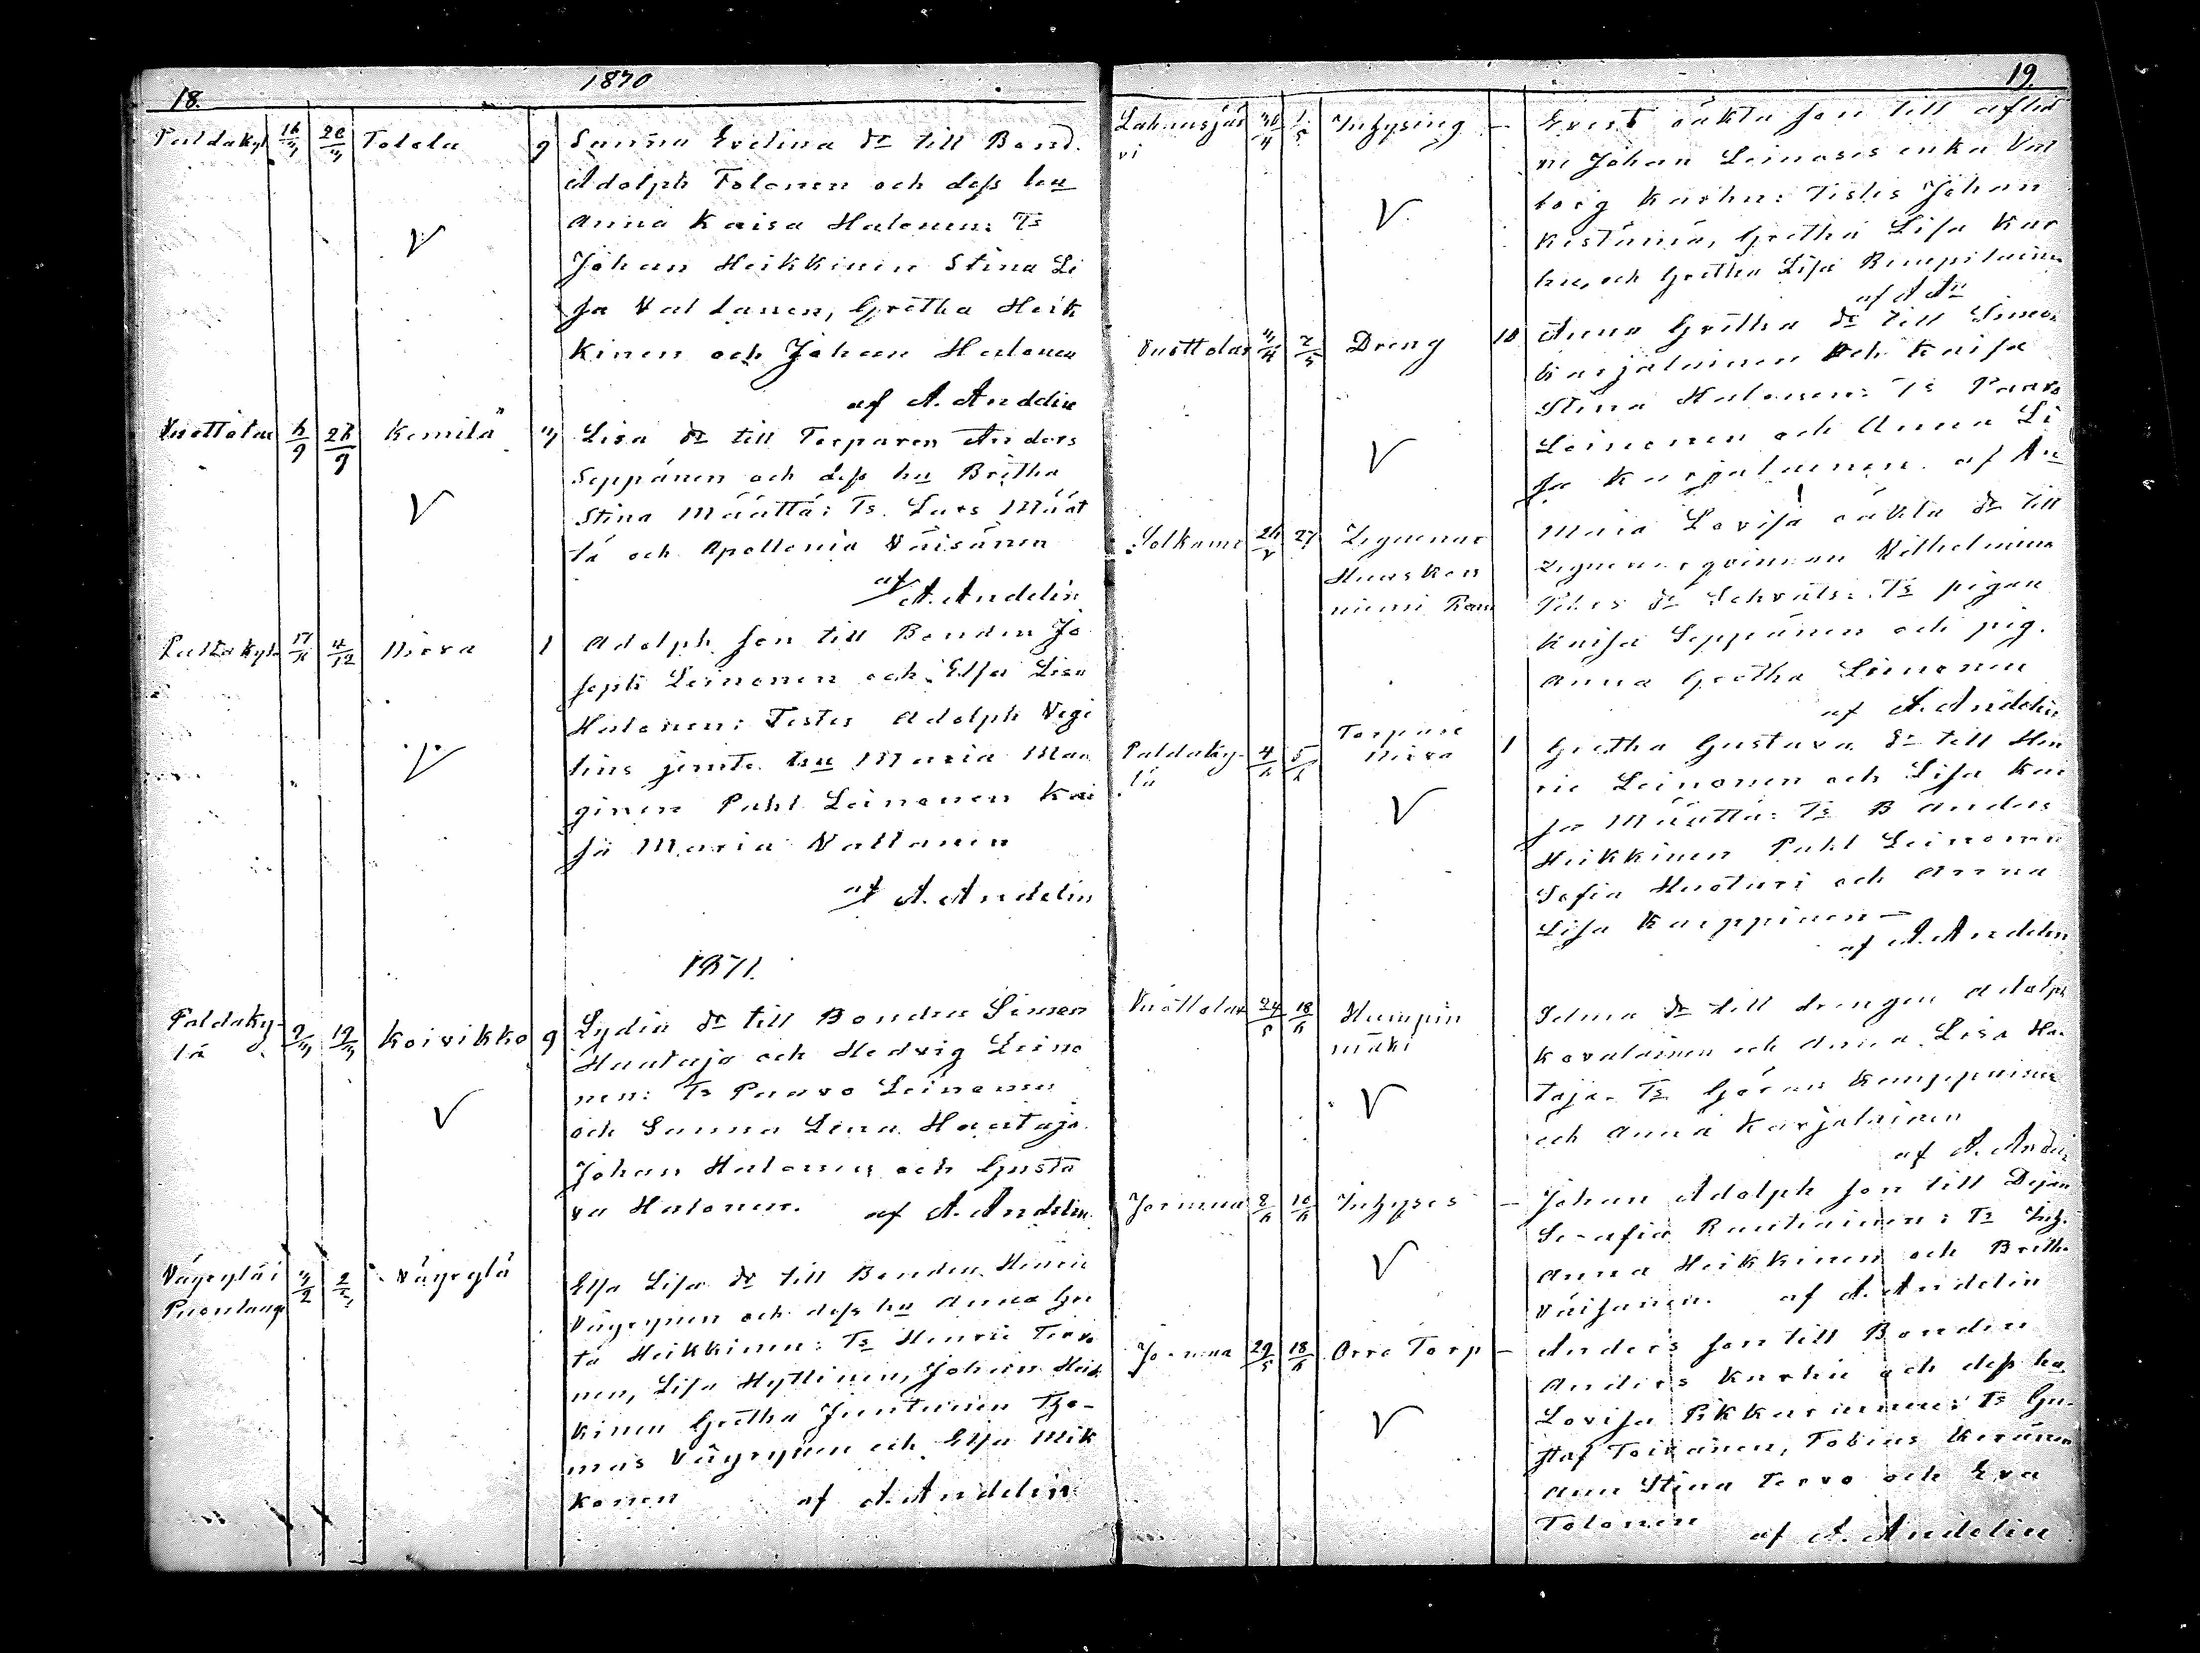 1870
18.
Paldakyl 16/4 20/4 Tolola 9 Sanna Evelina dr till Bond.
Adolph Tolonen och dess hu
Anna Kaisa Halonen: Ts
Johan Heikkinen Stina Li
sa Val tanen, Gretha Heik
kinen och Johan Halonen
af A. Andelin
Vuottolax 6/9 26/9 Kemilä 4 Lisa dr till Torparen Anders
Seppänen och dess hu Britha
Stina Määttä: Ts. Lars Määt
tä och Apollonia Väisänen
af A. Andelin
Paldakyl 4/12 Niera 1 Adolph son till Bonden Jo
seph Leinonen och Elsa Lisa
Halonen: Testes Adolph Vegi
lins jemte hu Maria Man
ginen Pahl Leinonen Kai
sa Maria Valtanen
af A. Andelin
1871.
Paldaky- 9/4 19/4 Koivikko 9 Lydia dr till Bonden Simon
lä Hautaja och Hedvig Leino
nen: Ts Paavo Leinonen
och Sanna Lena Hautaja
Johan Halonen och Gusta
va Halonen. af A. Andelin
Väyrylä i 4/2 Väyrylä Elsa Lisa dr till Bonden Henric
Puolang Väyrynen och dess hu Anna Gre
ta Heikkinen: Ts Henric Tervo
nen, Lisa Hyttinen, Johan Heik
kinen Gretha Juntunen Tho-
mas Väyrynen och Elsa Mik
konen af A. Andelin
19.
Lahnasjär 30/4 1/5 Inhysing – Ernst oäkta son till aflid
vi ne Johan Leinoses enka Val
borg Karhu: Testes Johan
Kistämä, Gretha Lisa Kar
hu, och Gretha Lisa
af A An
Vuottolax 4/4 7/5 Dreng 10 Anna Gretha dr till Simon
Karjalainen och Kaisa
Stina Halonen: Ts Paavo
Leinonen och Anna Li
sa Karjalainen. af An
Sotkamo 27 Zigenare Maria Lovisa oäkta dr till
Huusken zigenareqvinnan Wilhelmina
niemi Peters dr Ts pigan
Kaisa Seppänen och pig.
Anna Gretha Leinonen
af A. Andelin
Torpare
Paldaky- 4/6 5/6 Niera 1 Gretha Gustava dr till Hen
lä ric Leinonen och Lisa Kai
sa Määttä: Ts B Anders
Heikkinen Pahl Leinonen
Sofia Huoturi och Anna
Lisa Karppinen –
af A. Andelin
Vuottolax 24/5 18/6 Humpin Selma dr till drengen Adolph
mäki Kovalainen och Anna Lisa Ha
taja. Ts Göran Kemppainen
och Anna Karjalainen
af A. Andel
Jormua 8/6 10/6 Inhyses – Johan Adolph son till Dejan
Serafia Rautiainen: Ts Inh.
Anna Heikkinen och Britha
Väisänen. af A. Andelin
Jormua 29/5 18/6 Orre Torp – Anders son till Bonden
Anders Karhu och dess hu
Lovisa Pikkarainen: Ts Gu
staf Toivanen, Tobias Keränen
Ann Stina Tervo och Eva
Tolonen af A. Andelin